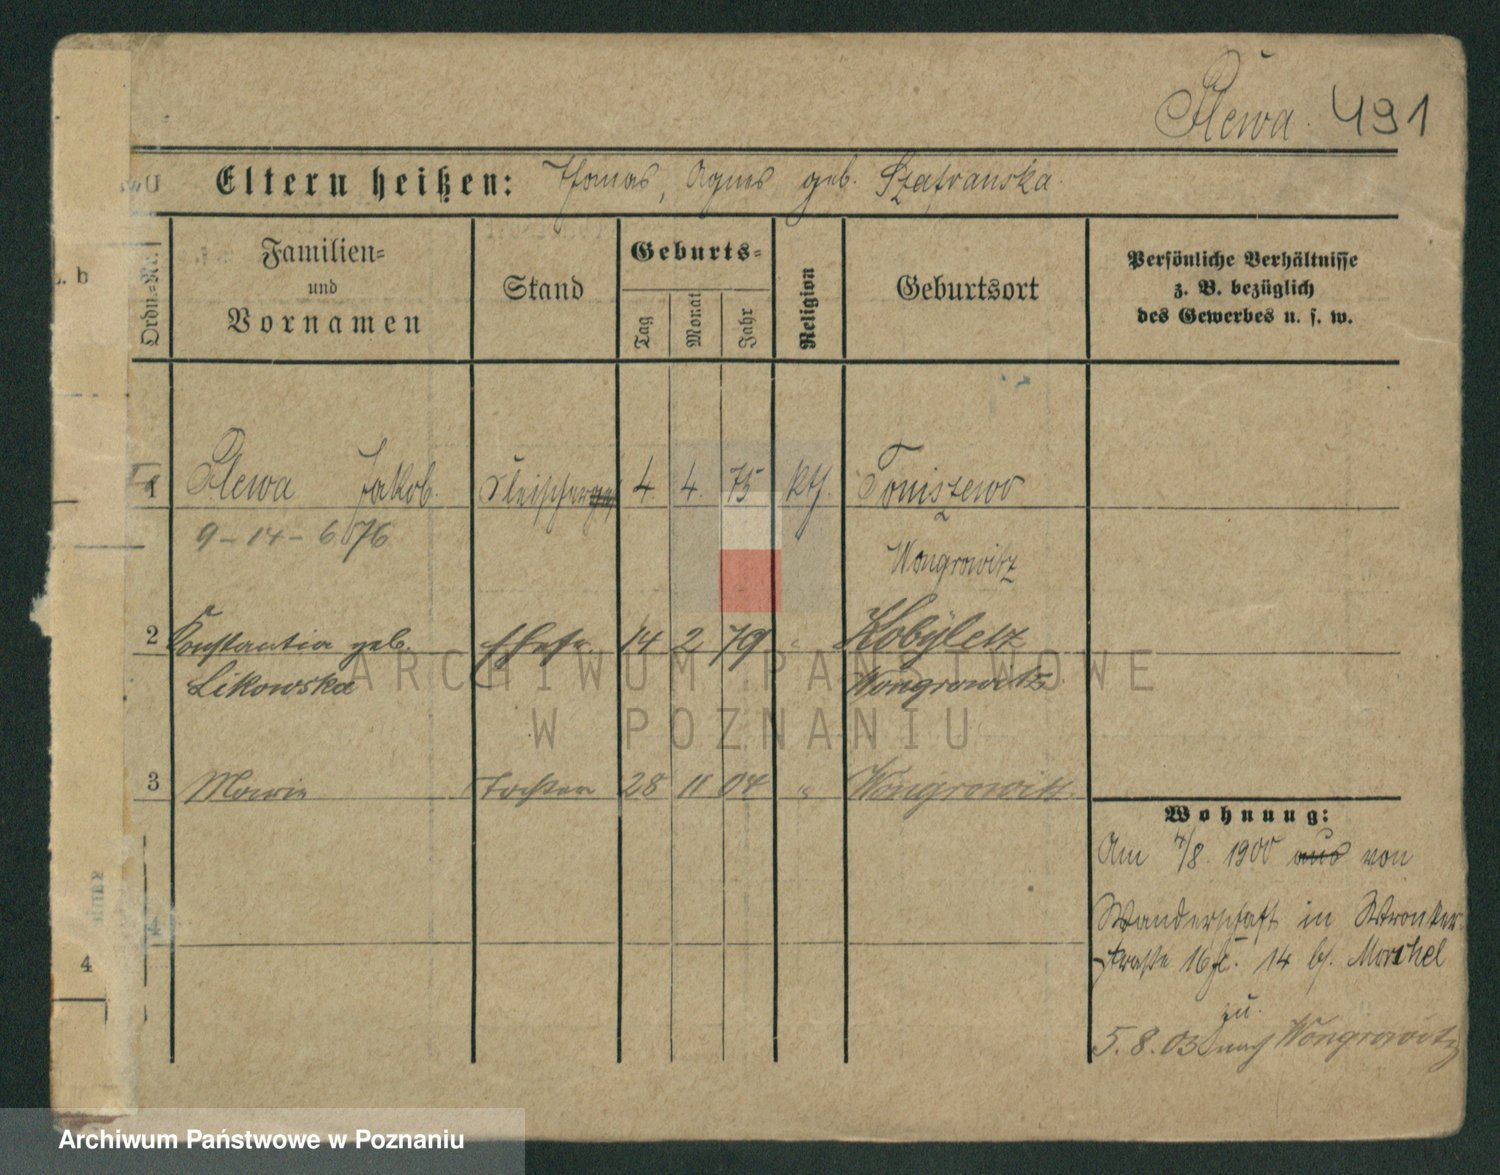 Plewa. 491
Eltern heißen: Thomas, Agnes geb. Szafranska.
Ordn.-Nr.
Familien-
und
Vornamen
Stand
Geburts-
Tag
Monat
Jahr
Religion
Geburtsort
Persönliche Verhältnisse
z. B. bezüglich
des Gewerbes u. s. w.
b
1 Plewa Jakob. Fleischer 4. 4. 75 kth. Toniszewo
9-14-6 76
Wongrowitz
2 Konstantia geb. Ehefr. 14 2 79 " Kobyletz
Likowska Wongrowitz
3 Marie Tochter 28 11 04 " Wongrowitz
Wohnung:
Am 7/8. 1900 aus von
Wanderschaft in Wronker-
straße 16 14 bei
zu.
5.8.03 nach Wongrowitz
4
4
ARCHIWUM PAŃSTWOWE
W POZNANIU
Archiwum Państwowe w Poznaniu